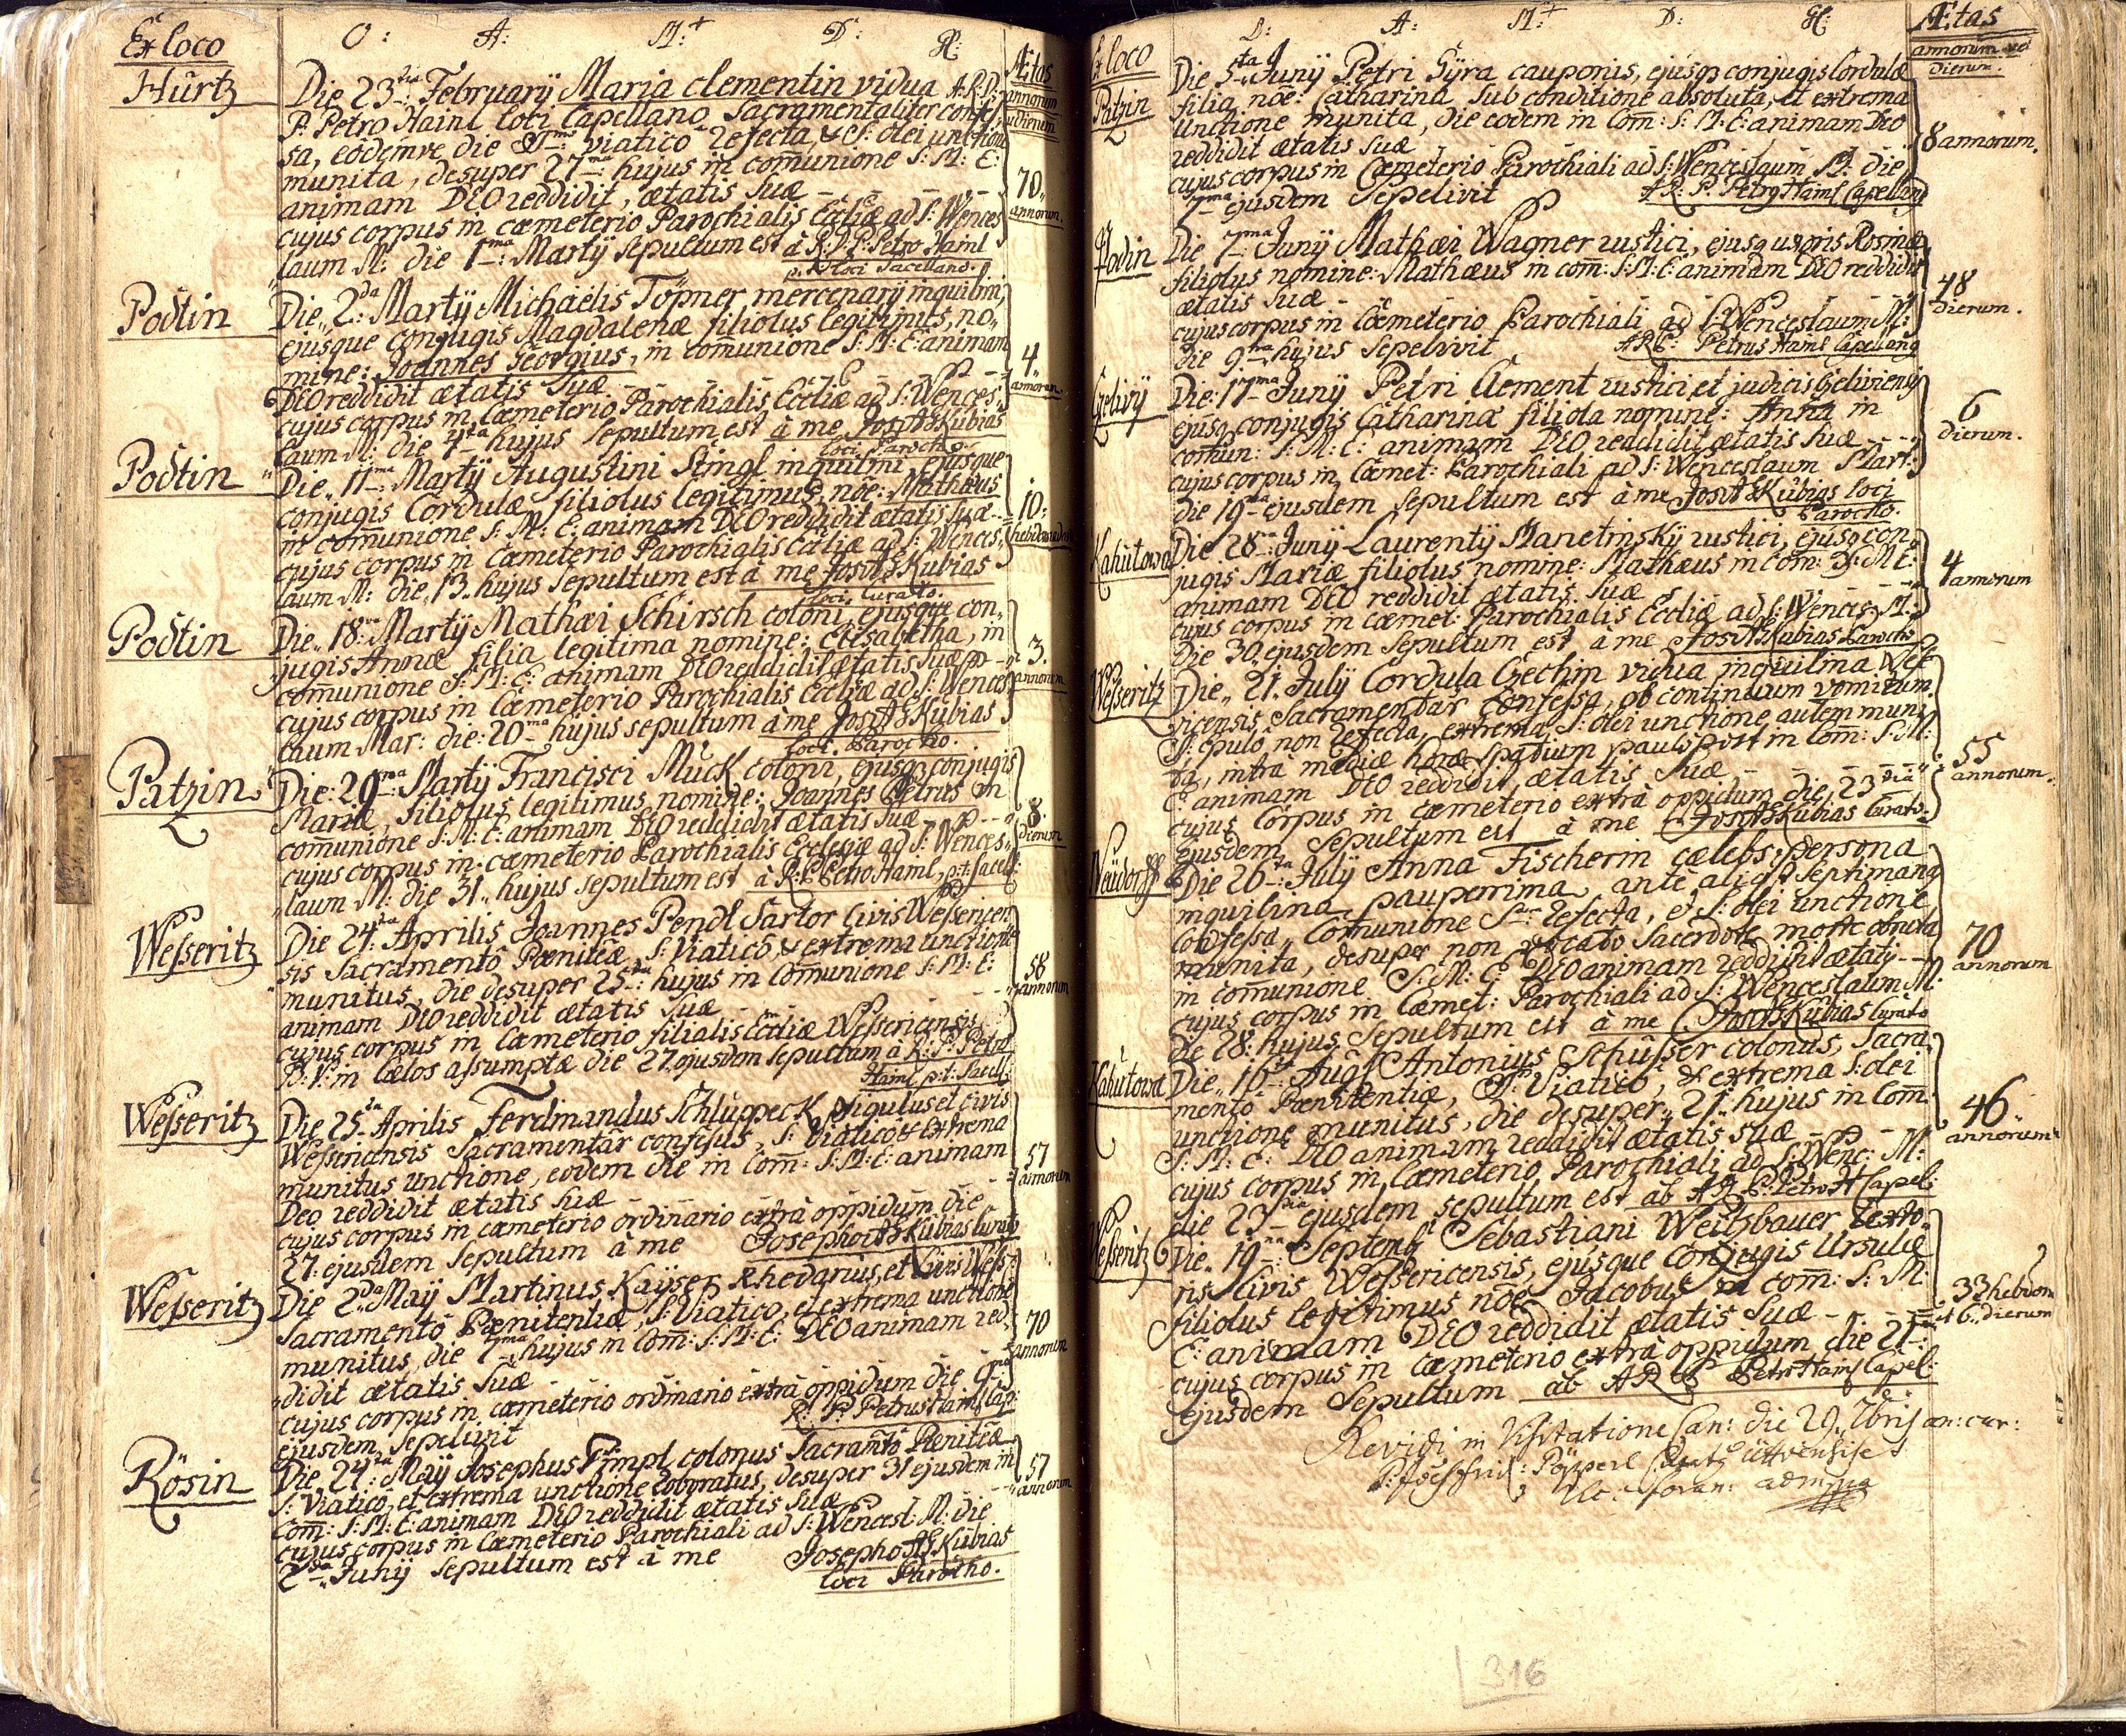 Ex loco
O: A: M: D: H:
Ætas
annorum
dierum
Hürtz
Die 23tia Februarÿ Maria Clementin vidua A: R: D:
P: Petro Hainl loci Capellano Sacramentaliter confes,
sa, eodemve die viatico refecta, & S: olei unctione
munita, desuper 27ma hujus in com̄unione S: M: E:
animam DEO reddidit, ætatis suæ
70
annorum.
cujus corpus in cæmeterio Parochialis Eccliæ ad S: Wences
laum M: die 1ma Martÿ sepultum est à R: D: P: Petro Hainl
p. t. loci Sacellano.
Podtin
Die 2da Martÿ Michaelis Töpner mercenarÿ inquilini,
ejusque conjugis Magdalenæ filiolus legitimus, no,,
mine: Joannes Georgius, in com̄unione S: M: E: animam
DEO reddidit ætatis suæ
4
annorum.
cujus corpus in Cæmeterio Parochialis Eccliæ ad S: Wences,
laum M: die 4ta hujus sepultum est à me Kubias
loci Parocho
Podtin
Die 11ma Martÿ Augustini Stingl inquilini ejusque
conjugis Cordulæ filiolus legitimus nōe: Mathæus
in com̄unione S: M: E: animam DEO reddidit ætatis suæ
10:
cujus corpus in Cæmeterio Parochialis Eccliæ ad S: Wences,
laum M: die 13 hujus sepultum est à me Kubias
loci Curato.
Podtin
Die 18va Martÿ Mathæi Schirsch coloni, ejusque con,
jugis Annæ filia legitima nomine: Elisabetha, in
com̄unione S: M: E: animam DEO reddidit ætatis suæ
3.
annorum
cujus corpus in Cæmeterio Parochialis Eccliæ ad S: Wences
laum Mar: die: 20ma hujus sepultum à me Kubias
loci Parocho.
Patzin
Die: 29na Martÿ Francisci Mück coloni, ejusq conjugis
Mariæ, filiolus legitimus nomine: Joannes Petrus in
com̄unione S: M: E: animam DEO reddidit ætatis suæ
8.
dierum
cujus corpus in cæmeterio Parochialis Ecclesiæ ad S: Wences,
laum M: die 31 hujus sepultum est à R: P: Petro Hainl, p: t: Sacell:
Wesseritz
Die 24ta Aprilis Joannes Pendl Sartor Civis Wessericen
sis Sacramento Pœnitēæ, S: Viatico, & extrema unctione
munitus, die desuper 25ta hujus in Com̄unione S: M: E:
animam DEO reddidit ætatis suæ
58
annorum
cujus corpus in Cæmeterio filialis Eccliæ Wessericensis
B: V: in Cœlos assumptæ die 27 ejusdem sepultum à R: P: Petro
Hainl p: t: Sacell:
Wesseritz
Die 25ta Aprilis Ferdinandus Schluppeck figulus et civis
Sacramentār confessus, S: Viatico & extrema
munitus unctione, eodem die in Com̄: S: M: E: animam
Deo reddidit ætatis suæ
57
annorum
cujus corpus in cæmeterio ordinario extrà oppidum die
27: ejusdem sepultum à me Josepho Kubias Curato
Wesseritz
Die 2da Maÿ Martinus Kaÿser Rhedarius, et Civis Wess,
Sacramento Pœnitentiæ, S: Viatico, et extrema unctione
munitus, die 7ma hujus in Com̄: S: M: E: DEO animam red,
didit ætatis suæ
70
annorum
cujus corpus in cæmeterio ordinario extrà oppidum die 9na
ejusdem sepelivit R: P: Petrus Hainl Cap:
Rösin
Die 24ta Maÿ Josephus Pimpl colonus Sacram̄to Pœnitēæ
S: Viatico, et extrema unctione roboratus, desuper 31 ejusdem in
Com̄: S: M: E: animam DEO reddidit ætatis suæ
57
annorum
cujus corpus in Cæmeterio Parochiali ad S: Wencesl: M: die
2da Junÿ sepultum est à me Josepho Kubias
loci Parocho.
Ex loco
D: A: M: D: H:
Ætas
annorum vel
dierum.
Patzin
Die 5ta Junÿ Petri Sÿra cauponis, ejusq conjugis Cordulæ
filia, nōe: Catharina sub conditione absoluta, et extrema
unctione munita, die eodem in Com̄: S: M: E: animam DEO
reddidit ætatis suæ
8 annorum.
cujus corpus in Cæmeterio Parochiali ad S: Wenceslaum M: die
7ma ejusdem sepelivit A: R: P: Petrus Hainl Capellang
Podin
Die 7ma Junÿ Mathæi Wagner rustici, ejusq uxoris Rosinæ
filiolus nomine: Mathæus in com̄: S: M: E: animam DEO reddidit
ætatis suæ
48
dierum.
cujus corpus in Cœmeterio Parochiali ad S: Wenceslaum M:
die 9na hujus sepelivit A R P: Petrus Hainl Capellang
Gelivÿ
Die: 17ma Junÿ Petri Clement rustici et judicis Geliviensis
ejusq conjugis Catharinæ filiola nomine: Anna in
com̄un: S: M: E: animam DEO reddidit ætatis suæ
6
dierum.
cujus corpus in Cæmet: Parochiali ad S: Wenceslaum Mart:
die 19na ejusdem sepultum est à me Kubias loci
Parocho.
Kahutowa
Die 28va Junÿ Laurentÿ Manetinskÿ rustici, ejusq con,
jugis Mariæ filiolus nomine: Mathæus in Com: S: M: E:
animam DEO reddidit ætatis suæ
4
annorum
cujus corpus in cæmet: Parochialis Eccliæ ad S: Wences: M:
die 30 ejusdem sepultum est à me Kubias Parocho
Wesseritz
Die 21. Julÿ Cordula Gechin vidua inquilina Wesse
ricensis Sacramentār confessa, ob continuum vomitum
S: epulo non refecta, extrema S: olei unctione autem muni,
ta, intra mediæ horæ spatium paulo post in Com̄: S: M:
E: animam DEO reddidit ætatis suæ
55
annorum.
cujus corpus in cæmeterio extrà oppidum die 23tia
ejusdem sepultum est à me Kubias Curato.
Neüdorff
Die 26ta Julÿ Anna Fischerin cælebs persona
inquilina pauperima, ante aliq Septimang
confessa, Com̄unione refecta, et S: olei unctione
munita, desuper non vocato Sacerdote morte obruta
in com̄unione S: M: E: DEO animam reddidit ætatis
70
annorum
cujus corpus in Cæmet: Parochiali ad S: Wenceslaum M.
die 28. hujus sepultum est à me Kubias Curato
Kahutowa
Die 16ta Aug Antonius Schüsser colonus, Sacra,
mento Pœnitentiæ, Viatico, & extrema S: olei
unctione munitus, die desuper 21 hujus in Com̄.
S: M: E: DEO animam reddidit ætatis suæ
46
annorum
cujus corpus in Cæmeterio Parochiali ad S: Wenc: M:
die 23tia ejusdem sepultum est ab A R P: Petro H Capel:
Wesseritz
Die 19na Septemb Sebastiani Weitzbauer texto,
ris Civis Wessericensis, ejusque Conjugis Ursulæ
filiolus legitimus nōe Jacobus in com̄: S: M:
E: animam DEO reddidit ætatis suæ
33 hebdom
et 6 dierum
cujus corpus in Cæmeterio extrà oppidum die 21
ejusdem sepultum ab A R P Petro Hainl Capel:
Revidi in Visitatione Can: die 29 7bris an: cur:
316